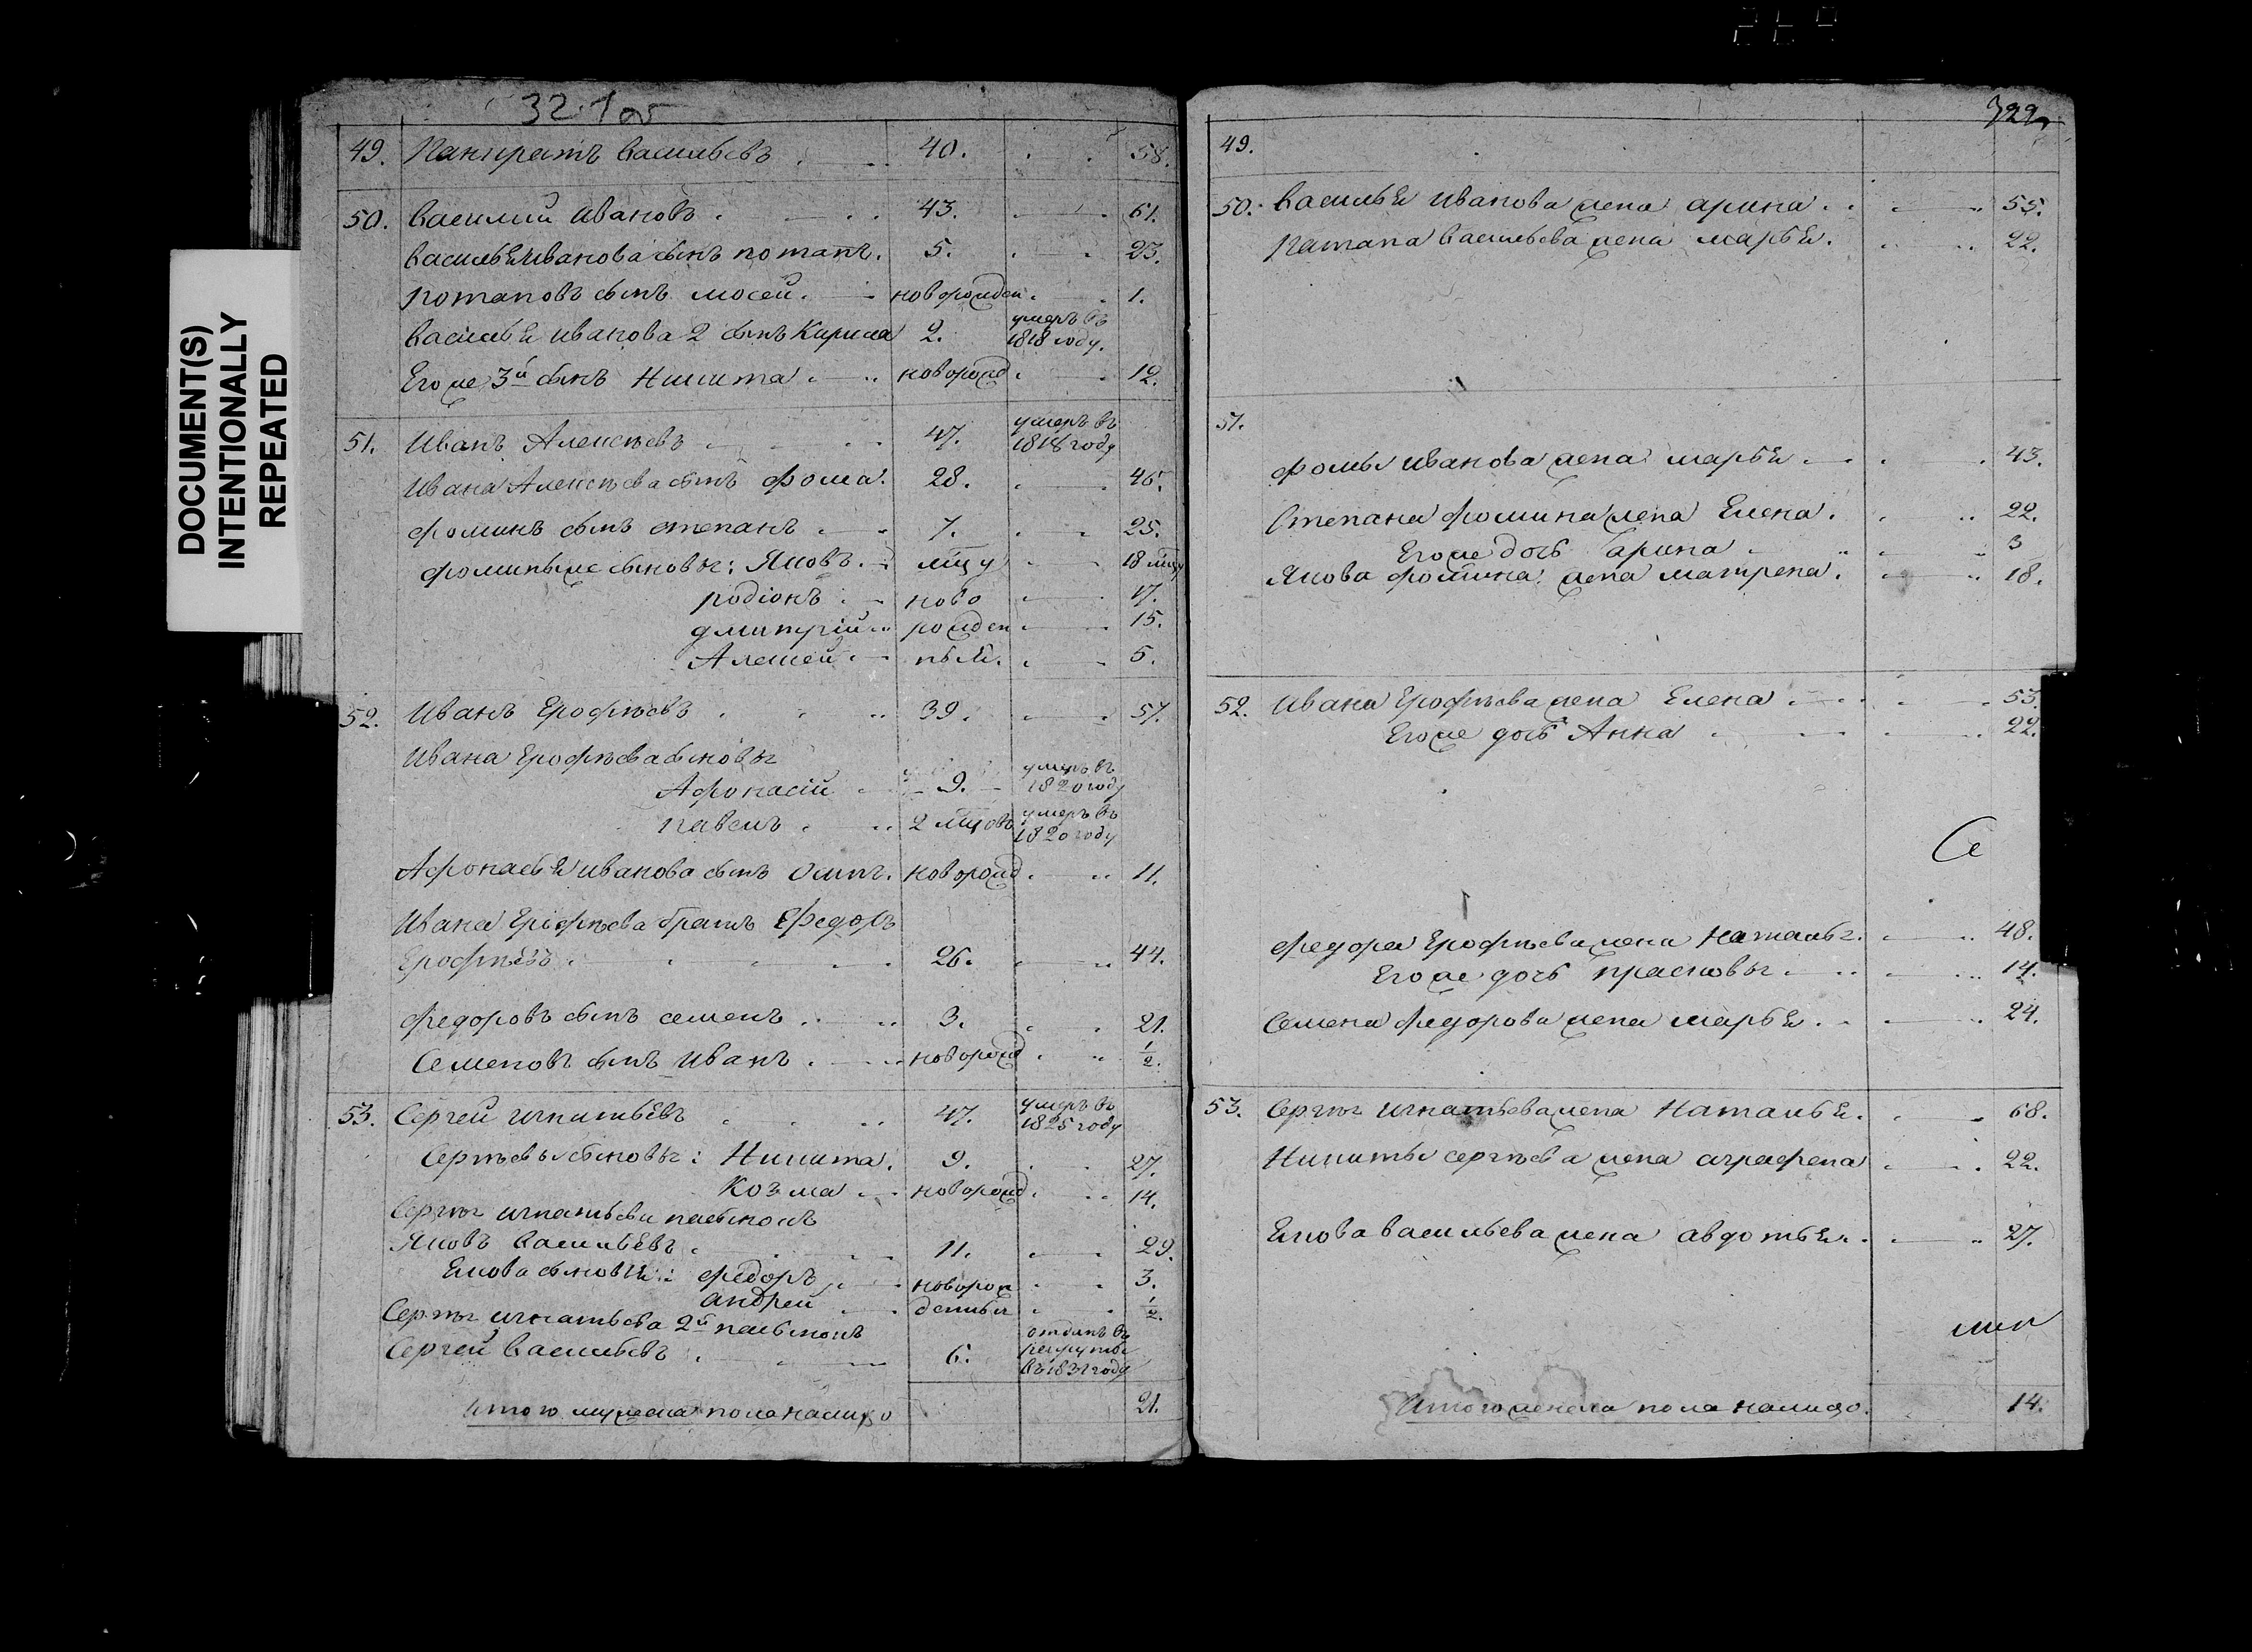 DOCUMENT(S)
INTENTIONALLY
REPEATED
321 об
49. Панкратъ васильевъ 40. 58.
50. василий ивановъ 43. 61.
василья иванова сынъ потапъ. 5. 23.
потаповъ сынъ мосей. новорожден. 1.
василья иванова 2 сынъ Кирила 2. умеръ въ 1818 году.
Его же 3й сынъ Никита новорожд 12.
51. Иванъ Алексѣевъ 47. умеръ въ 1818 году
Ивана Алексѣева сынъ фома. 28. 46.
фоминъ сынъ степанъ 7. 25.
фомины же сыновья: Яковъ. мцу 18 мцу
родіонъ ново 17.
дмитрій рожден 15.
Алексей ный. 5.
52. Иванъ Ерофѣевъ 39. 57.
Ивана Ерофѣева сыновья
Афонасій 9. умеръ въ 1820 году
павелъ 2 мцовъ умеръ въ 1820 году
Афонасья иванова сынъ осипъ. новорожд 11.
Ивана Ерофѣева братъ Федоръ
Ерофѣевъ 26. 44.
федоровъ сынъ семенъ 3. 21.
Семеновъ сынъ Иванъ новорожд 1/2.
53. Сергей игнатьевъ 47. умеръ въ 1825 году
Сергѣевы сыновья: Никита. 9. 27.
Козма новорожд 14.
Сергѣя игнатьева пасынокъ
Яковъ васильевъ 11. 29.
Екова сыновья: федоръ новорож 3.
андрей денныя 1/2.
Сергѣя игнатьева 2й пасынокъ
Сергей васильевъ 6. отданъ въ рекруты въ 1831 году
итого мужеска пола налицо 21.
322
49.
50. василья иванова жена арина 55.
патапа васильева жена марья. 22.
51.
фомы иванова жена марья 43.
Степана фомина жена Елена. 22.
Его же дочь арина 3
Якова фомина жена матрена. 18.
52. Ивана Ерофѣева жена Елена 53.
Его же дочь Анна 22.
федора Ерофѣева жена Наталья. 48.
Его же дочь прасковья 14.
Семена федорова жена марья 24.
53. Сергѣя игнатьева жена Наталья. 68.
Никиты сергѣева жена аграфена 22.
Екова васильева жена авдотья 27.
Итого женска пола налицо. 14.